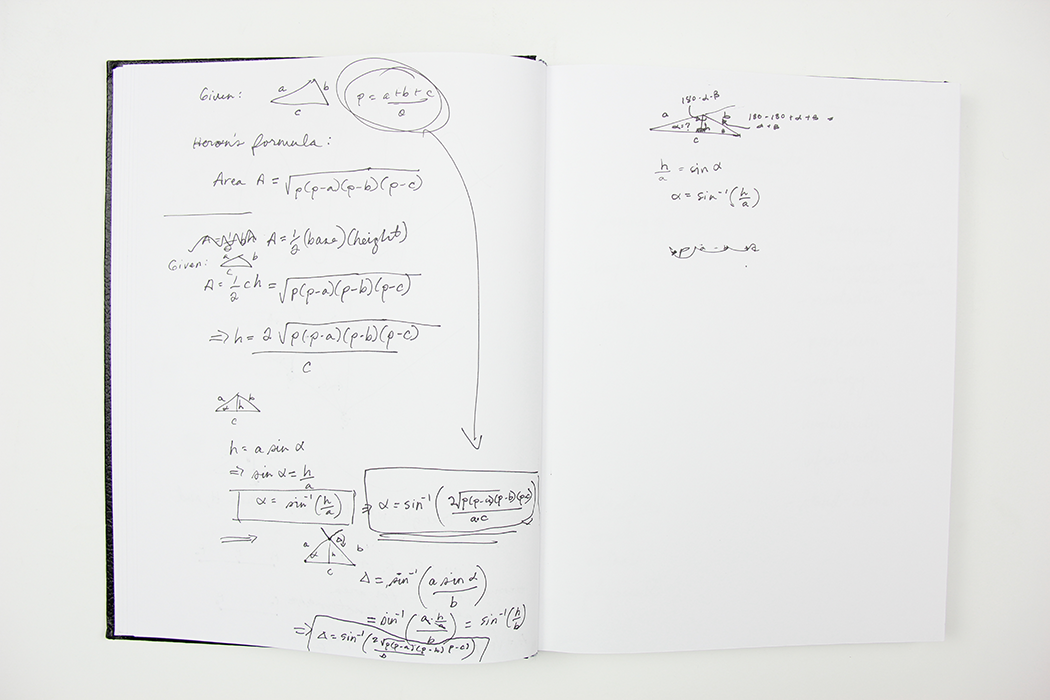 Given: a b c p = a+b+c / 2
Heron's formula:
Area A = √p(p-a)(p-b)(p-c)
A = 1/2 (base)(height)
Given: a b c
A = 1/2 ch = √p(p-a)(p-b)(p-c)
⇒ h = 2 √p(p-a)(p-b)(p-c) / c
a b α h c
h = a sin α
⇒ sin α = h/a
α = sin⁻¹(h/a) ⇒ α = sin⁻¹(2√p(p-a)(p-b)(p-c) / a·c)
⇒ a b α h Δ c
Δ = sin⁻¹(a sin α / b)
= sin⁻¹(a · h/a / b) = sin⁻¹(h/b)
⇒ Δ = sin⁻¹(2√p(p-a)(p-b)(p-c) / b
180-α-β
a b 180-180+α+β
α=? h α+β
c
h/a = sin α
α = sin⁻¹(h/a)